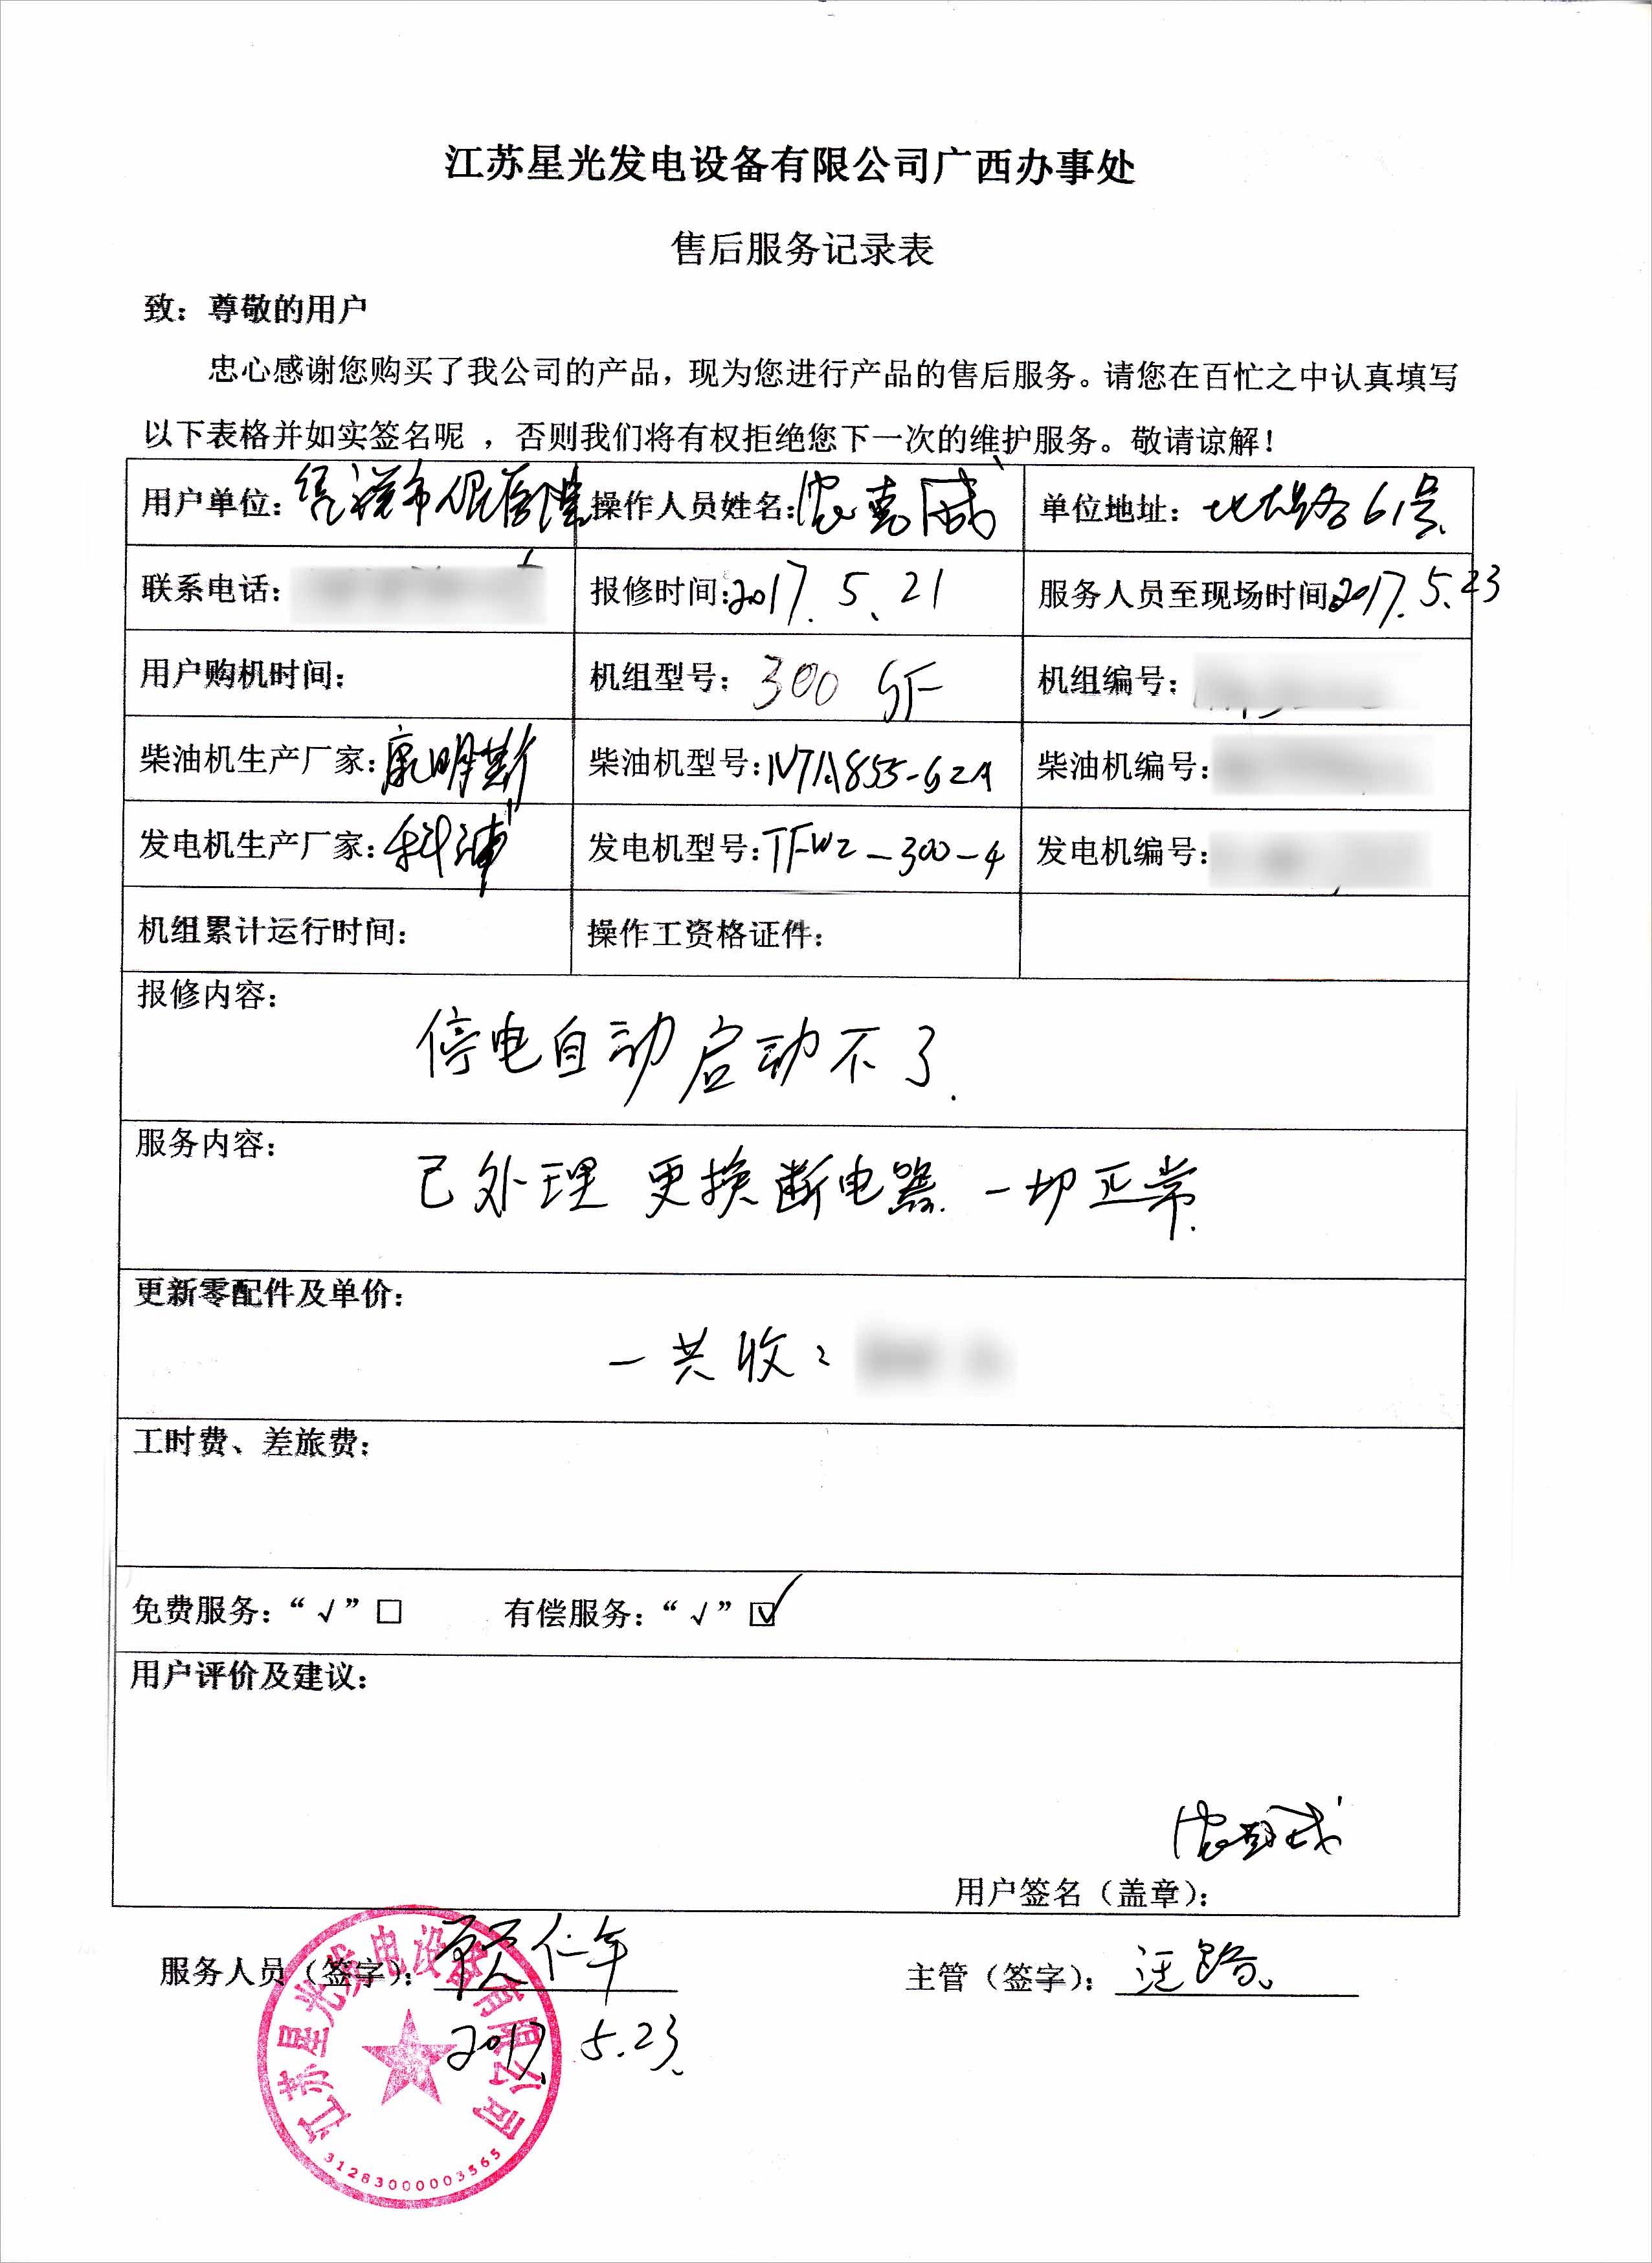 江苏星光发电设备有限公司广西办事处
售后服务记录表
致：尊敬的用户
忠心感谢您购买了我公司的产品，现为您进行产品的售后服务。请您在百忙之中认真填写
以下表格并如实签名呢 ，否则我们将有权拒绝您下一次的维护服务。敬请谅解！
用户单位： 操作人员姓名： 单位地址： 61号
联系电话： 报修时间：2017.5.21 服务人员至现场时间：2017.5.23
用户购机时间： 机组型号：300 GF 机组编号：
柴油机生产厂家：康明斯 柴油机型号：NTA855-G2A 柴油机编号：
发电机生产厂家：科浦 发电机型号：TFW2-300-4 发电机编号：
机组累计运行时间： 操作工资格证件：
报修内容：
停电自动启动不了.
服务内容：
已处理 更换断电器. 一切正常.
更新零配件及单价：
一共收：
工时费、差旅费：
免费服务：“√”□ 有偿服务：“√”☑
用户评价及建议：
用户签名（盖章）：
服务人员（签字）： 主管（签字）：
2017.5.23.
江苏星光发电设备有限公司